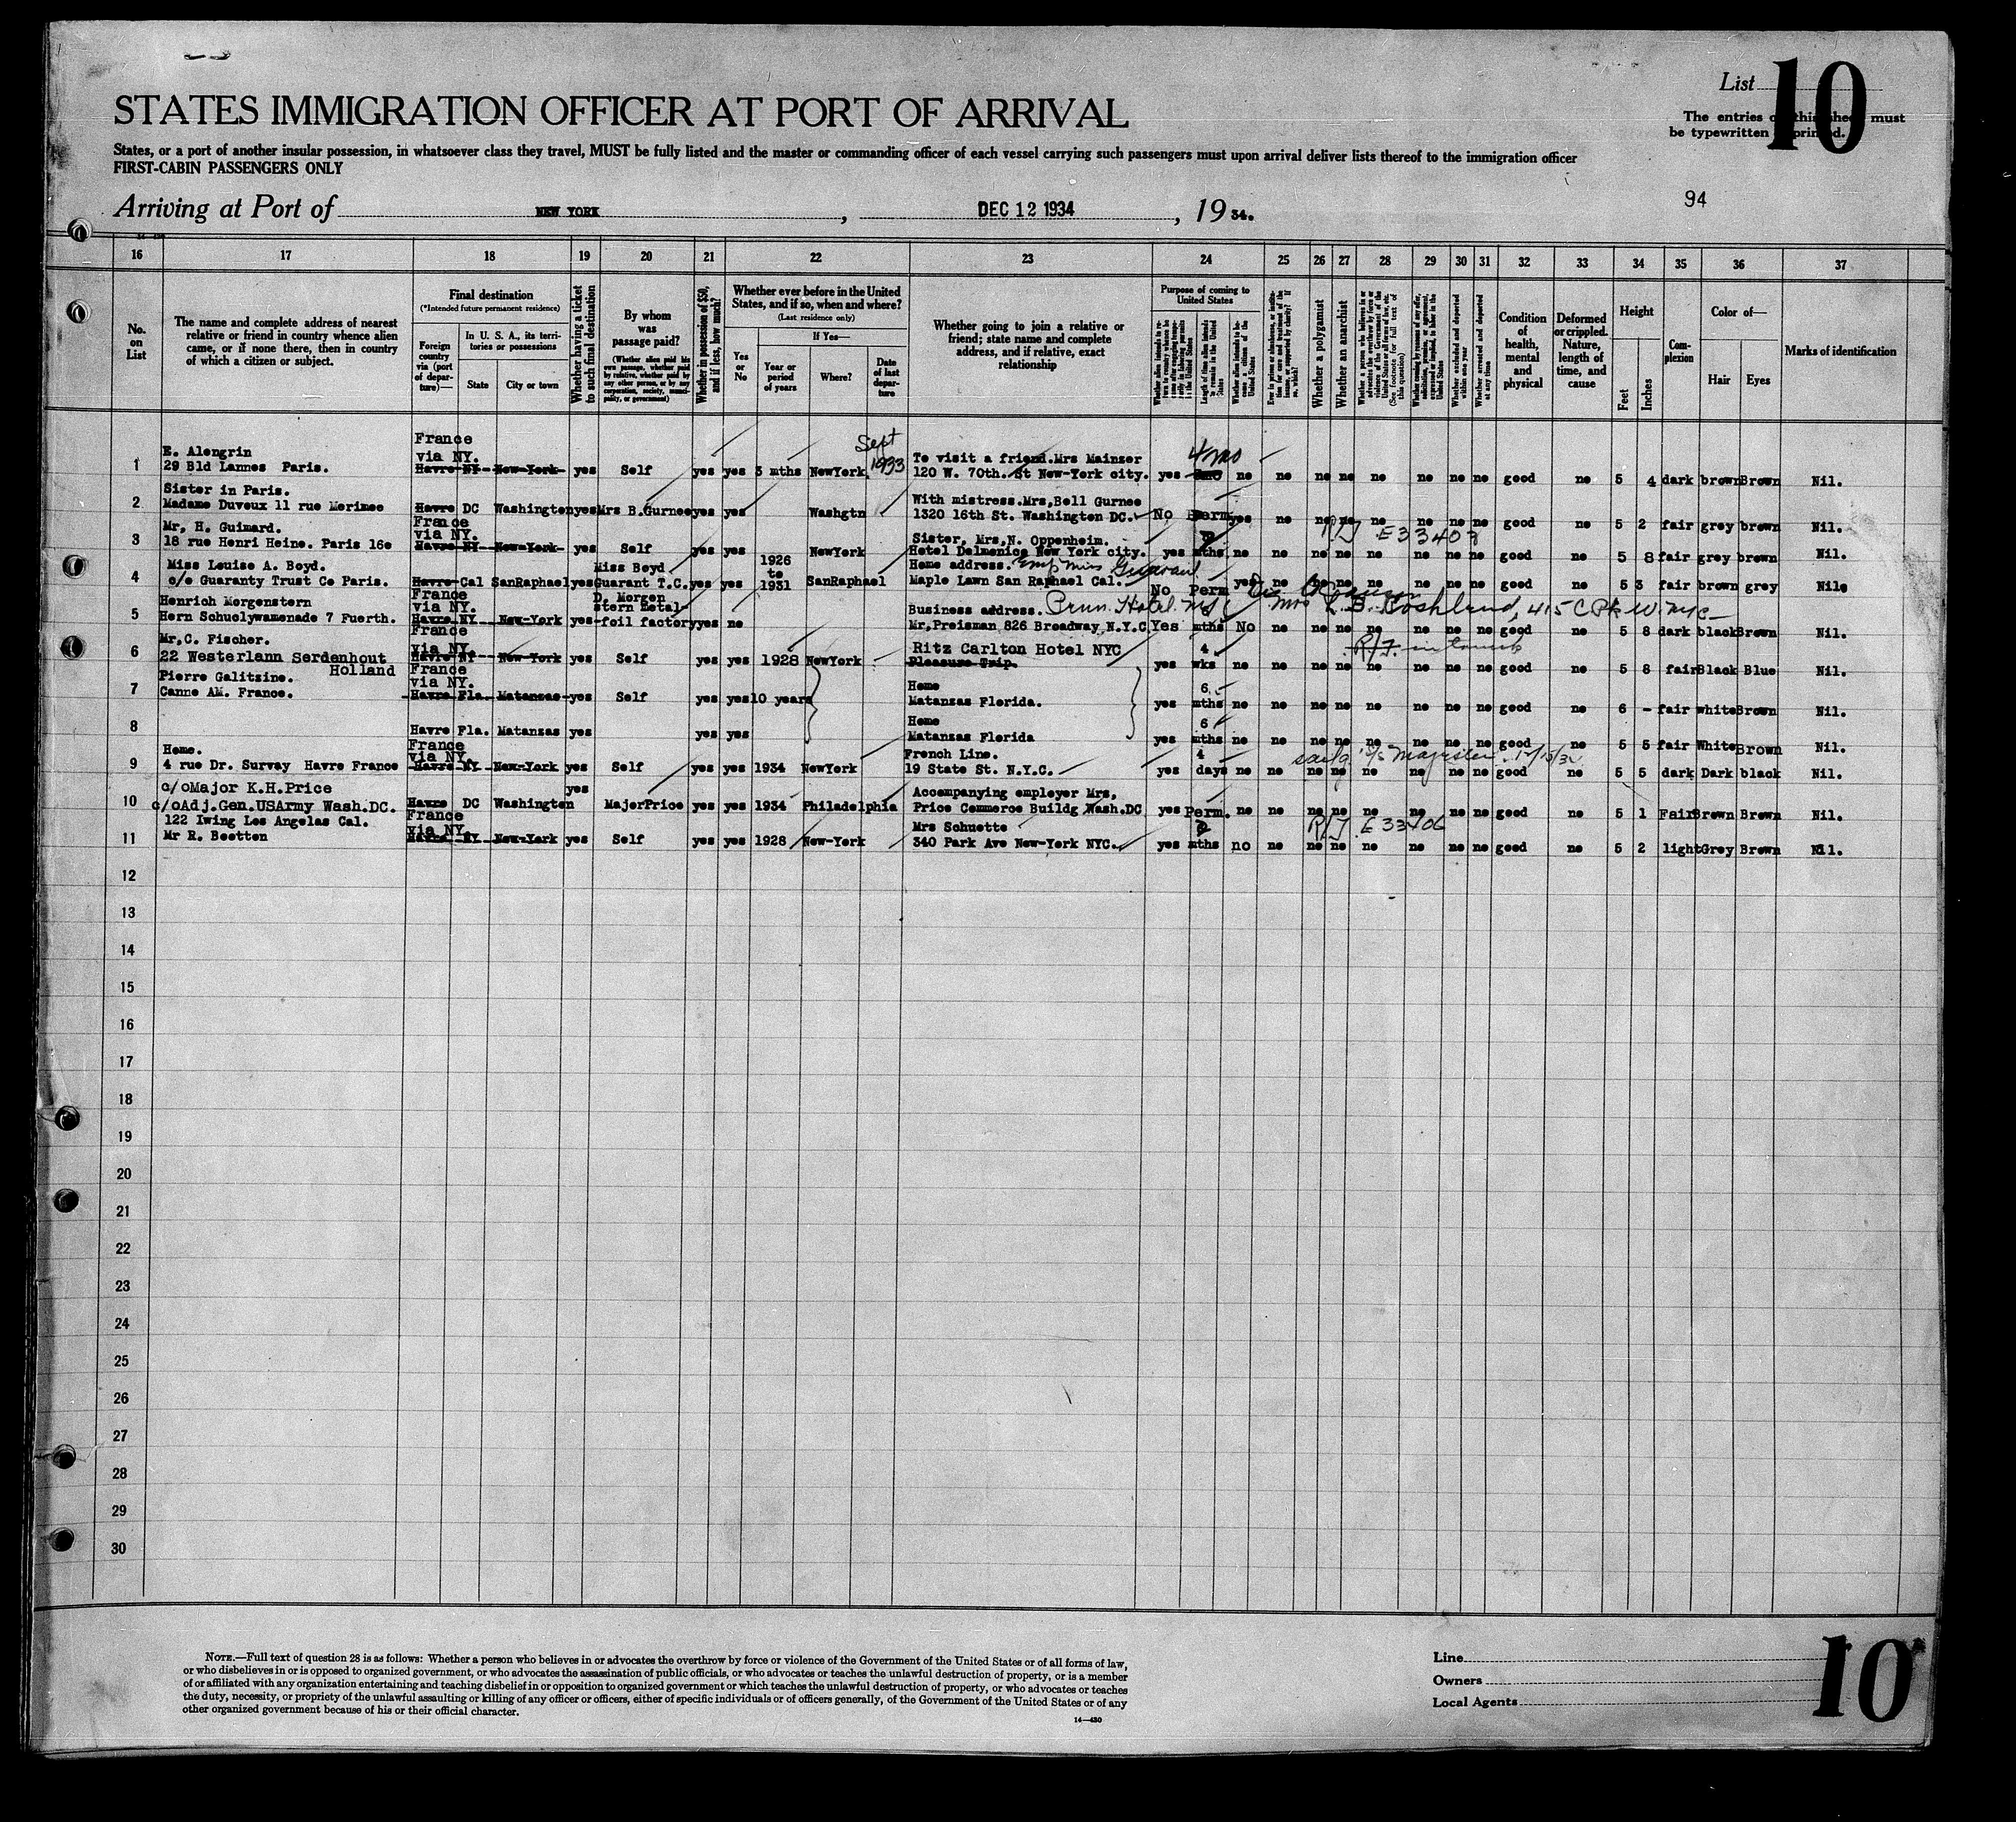 List 10
STATES IMMIGRATION OFFICER AT PORT OF ARRIVAL
The entries on this sheet must
be typewritten or printed.
States, or a port of another insular possession, in whatsoever class they travel, MUST be fully listed and the master or commanding officer of each vessel carrying such passengers must upon arrival deliver lists thereof to the immigration officer
FIRST-CABIN PASSENGERS ONLY
94
Arriving at Port of NEW YORK, DEC 12 1934, 19 34.
16 17 18 19 20 21 22 23 24 25 26 27 28 29 30 31 32 33 34 35 36 37
No. on List
The name and complete address of nearest relative or friend in country whence alien came, or if none there, then in country of which a citizen or subject.
Final destination
(*Intended future permanent residence)
Foreign country via (port of departure)—
In U. S. A., its territories or possessions
State
City or town
Whether having a ticket to such final destination
By whom was passage paid?
(Whether alien paid his own passage, whether paid by relative, whether paid by any other person, or by any corporation, society, municipality, or government)
Whether in possession of $50, and if less, how much?
Whether ever before in the United States, and if so, when and where?
(Last residence only)
Yes or No
If Yes—
Year or period of years
Where?
Date of last departure
Whether going to join a relative or friend; state name and complete address, and if relative, exact relationship
Purpose of coming to United States
Length of time alien intends to remain in the United States
Whether alien intends to become a citizen of the United States
Whether a polygamist
Whether an anarchist
(See footnote for full text of this question)
Whether excluded and deported within one year
Whether arrested and deported at any time
Condition of health, mental and physical
Deformed or crippled. Nature, length of time, and cause
Height
Feet
Inches
Complexion
Color of—
Hair
Eyes
Marks of identification
1 E. Alengrin
29 Bld Lannes Paris.
France via NY. Havre NY New-York yes Self yes yes 3 mths NewYork Sept 1933 To visit a friend.Mrs Mainzer
120 W. 70th. St New-York city. yes 4 mo no no no no no no no no good no 5 4 dark brown Brown Nil.
2 Sister in Paris.
Madame Duveux 11 rue Merimee
Havre DC Washington yes Mrs B.Gurnee yes yes Washgtn With mistress.Mrs,Bell Gurnee
1320 16th St. Washington DC. No Perm yes no no no no no no no good no 5 2 fair grey brown Nil.
3 Mr, H. Guimard.
18 rue Henri Heine. Paris 16e
France via NY. Havre NY New-York yes Self yes yes NewYork Sister, Mrs,N. Oppenheim.
Hotel Delmonico New York city. yes mths no no no no no no no no good no 5 8 fair grey brown Nil.
E 33407
4 Miss Louise A. Boyd.
c/o Guaranty Trust Co Paris.
Havre Cal SanRaphael yes Miss Boyd Guarant T.C. yes yes 1926 to 1931 SanRaphael Home address. Emp Miss
Maple Lawn San Raphael Cal. No Perm yes no no no no no no no good no 5 3 fair brown grey Nil.
5 Henrich Morgenstern
Hern Schuclywamenade 7 Fuerth.
France via NY. Havre NY New-York yes D. Morgen stern Metal-foil factory yes no Business address. Hotel NYC Mrs L. B. 415 C Pk W. NYC
Mr,Preisman 826 Broadway N.Y.C Yes mths No no no no no no no no good no 5 8 dark black Brown Nil.
6 Mr,C. Fischer.
22 Westerlann Serdenhout Holland
France via NY. Havre NY New-York yes Self yes yes 1928 NewYork Ritz Carlton Hotel NYC
Pleasure Trip. yes 4 wks no no no no no no no no good no 5 8 fair Black Blue Nil.
7 Pierre Galitzine.
Canne AM. France.
France via NY. Havre Fla. Matanzas yes Self yes yes 10 years Home
Matanzas Florida. yes 6 mths no no no no no no no no good no 6 - fair white Brown Nil.
8 Havre Fla. Matanzas yes yes yes Home
Matanzas Florida yes 6 mths no no no no no no no no good no 5 5 fair White Brown Nil.
9 Home.
4 rue Dr. Survay Havre France
France via NY. Havre NY New-York yes Self yes yes 1934 NewYork French Line.
19 State St. N.Y.C. yes 4 days no no no no no no no no good no 5 5 dark Dark black Nil.
10 c/oMajor K.H.Price
c/oAdj.Gen.USArmy Wash.DC.
Havre DC Washington yes MajorPrice yes yes 1934 Philadelphia Accompanying employer Mrs,
Price Commerce Buildg Wash.DC yes Perm. no no no no no no no no good no 5 1 Fair Brown Brown Nil.
11 122 Iwing Los Angelas Cal.
Mr R. Beetten
France via NY. Havre NY New-York yes Self yes yes 1928 New-York Mrs Schuette
340 Park Ave New-York NYC. yes 2 mths no no no no no no no no good no 5 2 light Grey Brown Nil.
E 33406
12
13
14
15
16
17
18
19
20
21
22
23
24
25
26
27
28
29
30
NOTE.—Full text of question 28 is as follows: Whether a person who believes in or advocates the overthrow by force or violence of the Government of the United States or of all forms of law,
or who disbelieves in or is opposed to organized government, or who advocates the assassination of public officials, or who advocates or teaches the unlawful destruction of property, or is a member
of or affiliated with any organization entertaining and teaching disbelief in or opposition to organized government or which teaches the unlawful destruction of property, or who advocates or teaches
the duty, necessity, or propriety of the unlawful assaulting or killing of any officer or officers, either of specific individuals or of officers generally, of the Government of the United States or of any
other organized government because of his or their official character.
14—430
Line
Owners
Local Agents
10